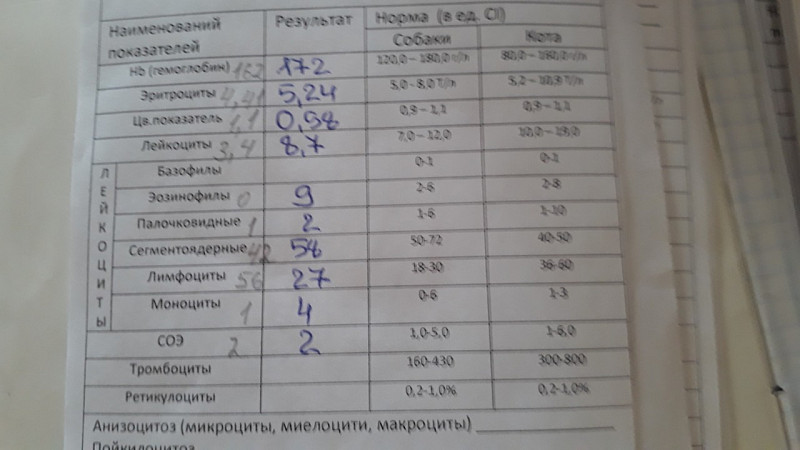 Наименований показателей Результат Норма (в ед. СІ)
Собаки Кота
Hb (гемоглобин) 162 172 120,0 – 180,0 г/л 80,0 – 150,0 г/л
Эритроциты 4,41 5,24 5,0 – 8,0 Т/л 5,2 – 10,8 Т/л
Цв.показатель 1,1 0,98 0,9 – 1,1 0,9 – 1,1
Лейкоциты 3,4 8,7 7,0 – 12,0 10,0 – 15,0
ЛЕЙКОЦИТЫ
Базофилы 0-1 0-1
Эозинофилы 0 9 2-6 2-8
Палочковидные 1 2 1-6 1-10
Сегментоядерные 42 58 50-72 40-50
Лимфоциты 56 27 18-30 36-60
Моноциты 1 4 0-6 1-3
СОЭ 2 2 1,0-5,0 1-6,0
Тромбоциты 160-430 300-800
Ретикулоциты 0,2-1,0% 0,2-1,0%
Анизоцитоз (микроциты, миелоцити, макроциты)
Пойкилоцитоз